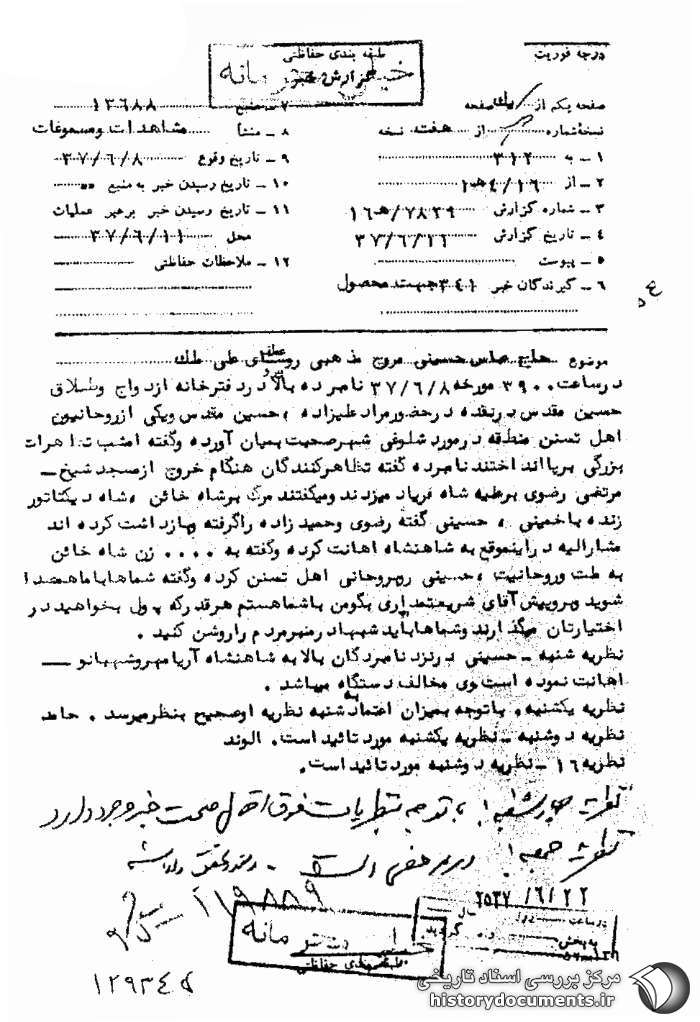 درجه فوریت
طبقه بندی حفاظتی
گزارش خبر
خیلی محرمانه
صفحه یکم از یک صفحه
نسخه شماره از هفته نسخه
۱ – به ۳۱۲
۲ – از ۱۶/ﻫ۴
۳ – شماره گزارش ۷۸۲۹/ﻫ۱۶
۴ – تاریخ گزارش
۵ – پیوست
۶ – گیرندگان خبر ۳۴۱ جهت محصول
۷ – منبع ۱۳۶۸۸
۸ – منشأ مشاهدات ومسموعات
۹ – تاریخ وقوع ۳۷/۶/۸
۱۰ – تاریخ رسیدن خبر به منبع
۱۱ – تاریخ رسیدن خبر برهبر عملیات
محل ۳۷/۶/۱۱
۱۲ – ملاحظات حفاظتی
موضوع حاج عباس حسینی مروج مذهبی روستای علی ملک
درساعت ۰۹۰۰ مورخه ۳۷/۶/۸ نامبرده بالا دردفترخانه ازدواج وطلاق
حسین مقدس درنقده درحضورمراد علیزاده ، حسین مقدس ویکی ازروحانیون
اهل تسنن منطقه درمورد شلوغی شهرصحبت بمیان آورده وگفته امشب تظاهرات
بزرگی برپا انداختند نامبرده گفته تظاهرکنندگان هنگام خروج ازمسجد شیخ –
مرتضی رضوی برعلیه شاه فریاد میزدند ومیگفتند مرگ برشاه خائن ، شاه دیکتاتور
زنده باخمینی ، حسینی گفته رضوی وحمید زاده راگرفته وبازداشت کرده اند
مشارالیه دراینموقع به شاهنشاه اهانت کرده وگفته به .... زن شاه خائن
به ملت وروحانیت ، حسینی روبروحانی اهل تسنن کرده وگفته شماهاباماهمصدا
شوید وبروپیش آقای شریعتمداری بگومن باشماهستم هرقدرکه پول بخواهید در
اختیارتان میگذارند وشماهاباید شبهاد رمنبرمردم راروشن کنید .
نظریه شنبه – حسینی درنزد نامبردگان بالا به شاهنشاه آریامهروشهبانو –
اهانت نموده است وی مخالف دستگاه میباشد .
نظریه یکشنبه . باتوجه بمیزان اعتماد به شنبه نظریه اوصحیح بنظرمیرسد . حامد
نظریه دوشنبه – نظریه یکشنبه مورد تائید است . الوند
نظریه ۱۶ – نظریه دوشنبه مورد تائید است .
نظریه چهارشنبه : با توجه بنظریات فوق احتمال صحت خبر وجود دارد
نظریه جمعه :
۱۱۹۸۸۹
۲۵۳۷/۶/۲۲
خیلی محرمانه
طبقه بندی حفاظتی
۱۲۹۳۴۵
مرکز بررسی اسناد تاریخی
historydocuments.ir